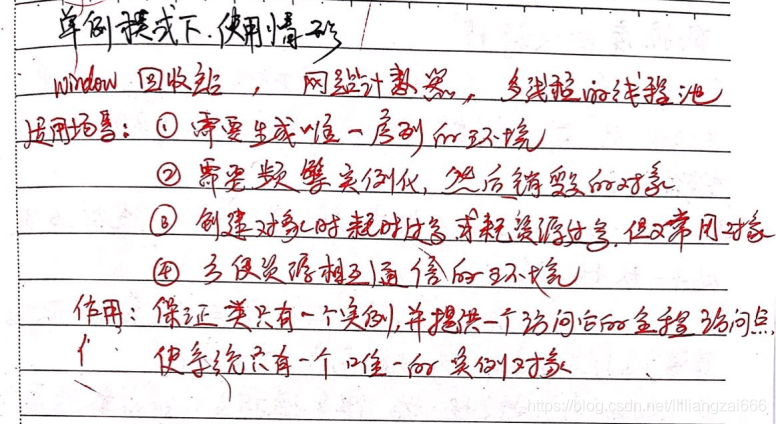 单例模式下.使用情形
window 回收站 ， 网站计数器， 多线程的线程池
适用场景：① 需要生成唯一序列的环境
② 需要频繁实例化，然后销毁的对象
③ 创建对象时耗时过多或耗资源过多.但又常用对象
④ 方便资源相互通信的环境
作用：保证类只有一个实例,并提供一个访问它的全程访问点,
使系统只有一个唯一的实例对象
https://blog.csdn.net/liliangzai666